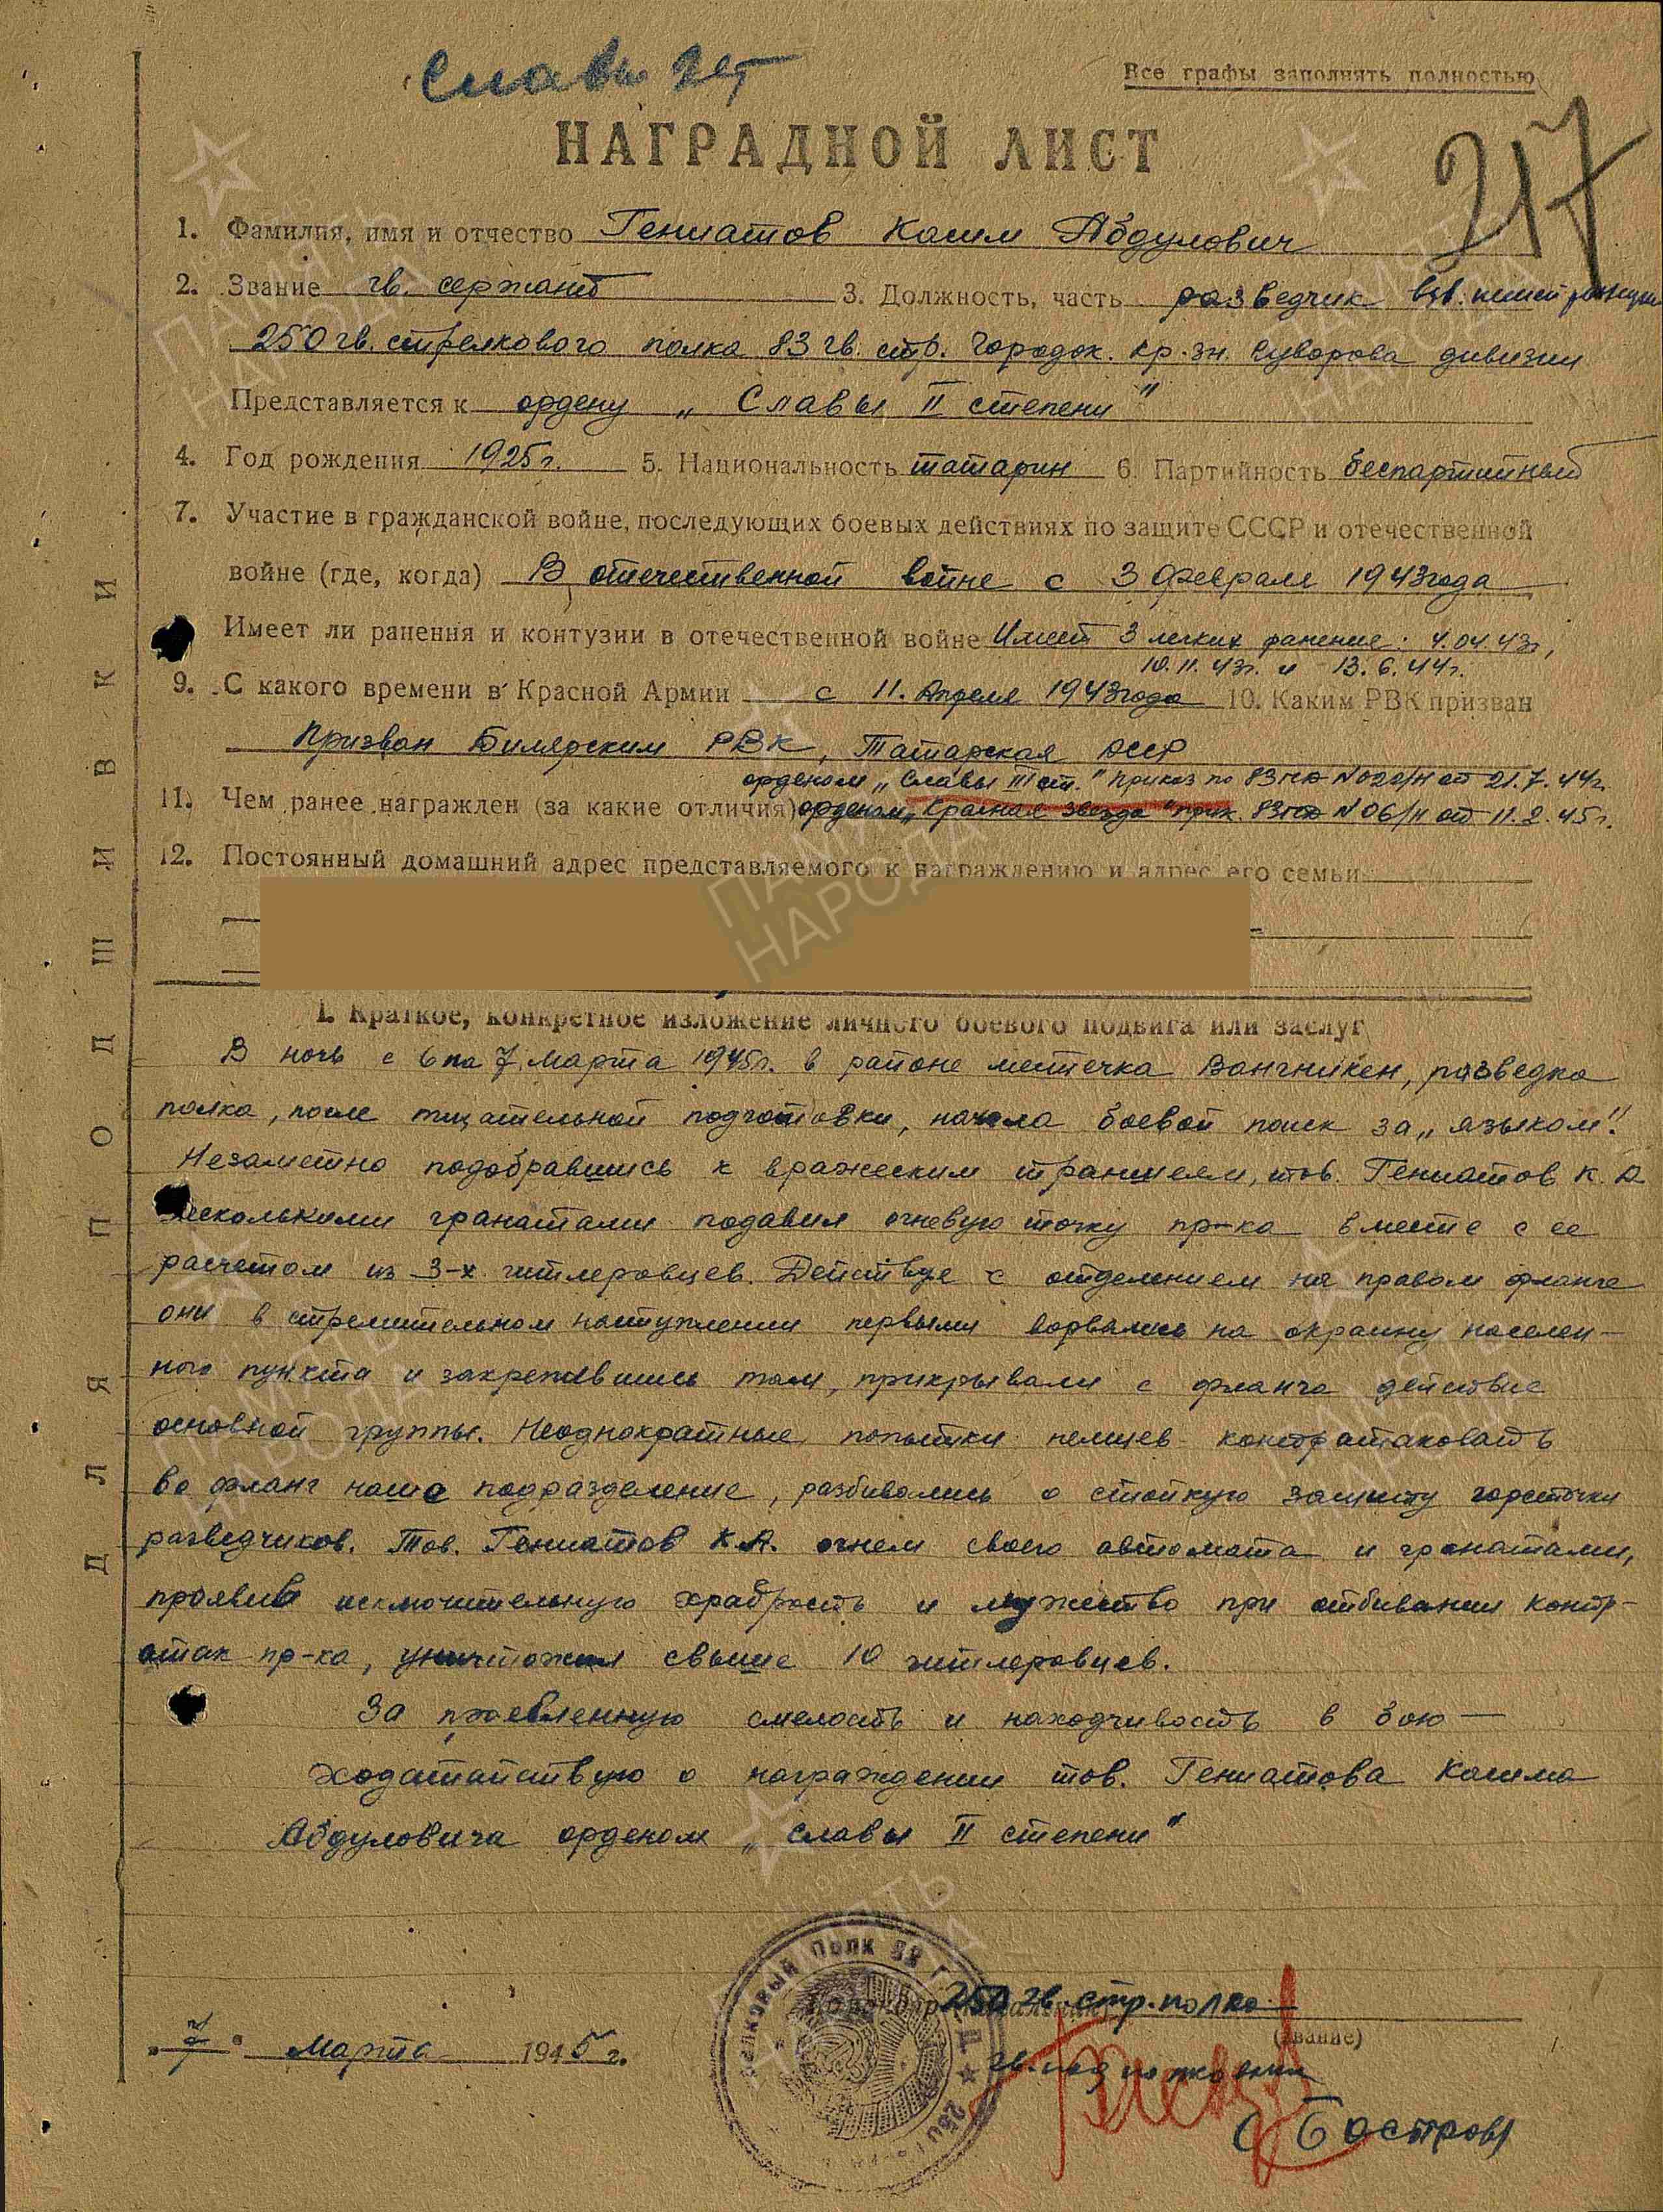 Славы 2ст
Все графы заполнять полностью
217
НАГРАДНОЙ ЛИСТ
1. Фамилия, имя и отчество Гениатов Касим Абдулович
2. Звание гв. сержант 3. Должность, часть разведчик взв. пешей разведки
250 гв. стрелкового полка 83 гв. стр. Городок. кр. зн. Суворова дивизии
Представляется к ордену „Славы II степени"
4. Год рождения 1925 г. 5. Национальность татарин 6. Партийность беспартийный
7. Участие в гражданской войне, последующих боевых действиях по защите СССР и отечественной
войне (где, когда) В отечественной войне с 3 февраля 1943 года
Имеет ли ранения и контузии в отечественной войне Имеет 3 легких ранение: 4.04.43г,
10.11.43г. и 13.6.44г.
9. С какого времени в Красной Армии с 11. Апреля 1943 года 10. Каким РВК призван
Призван Билярским РВК, Татарская АССР
орденом „Славы III ст." приказ по 83 гсд №020/н от 21.7.44г.
11. Чем ранее награжден (за какие отличия) орденом „Красная звезда" прик. 83 гсд №06/н от 11.2.45г.
12. Постоянный домашний адрес представляемого к награждению и адрес его семьи
I. Краткое, конкретное изложение личного боевого подвига или заслуг
В ночь с 6 на 7 марта 1945г. в районе местечка Вангникен, разведка
полка, после тщательной подготовки, начала боевой поиск за „языком".
Незаметно подобравшись к вражеским траншеям, тов. Гениатов К. А.
несколькими гранатами подавил огневую точку пр-ка вместе с ее
расчетом из 3-х гитлеровцев. Действуя с отделением на правом фланге
они в стремительном наступлении первыми ворвались на окраину населен-
ного пункта и закрепившись там, прикрывали с фланга действие
основной группы. Неоднократные попытки немцев контратаковать
во фланг наше подразделение, разбивались о стойкую защиту горсточки
разведчиков. Тов. Гениатов К.А. огнем своего автомата и гранатами,
проявив исключительную храбрость и мужество при отбивании контр-
атак пр-ка, уничтожил свыше 10 гитлеровцев.
За проевленную смелость и находчивость в бою —
ходатайствую о награждении тов. Гениатова Касима
Абдуловича орденом „Славы II степени"
250 гв. стр. полка
(звание)
„7" Марта 1945 г.
гв. подполковник
Бостров
ДЛЯ ПОДШИВКИ
ПАМЯТЬ НАРОДА